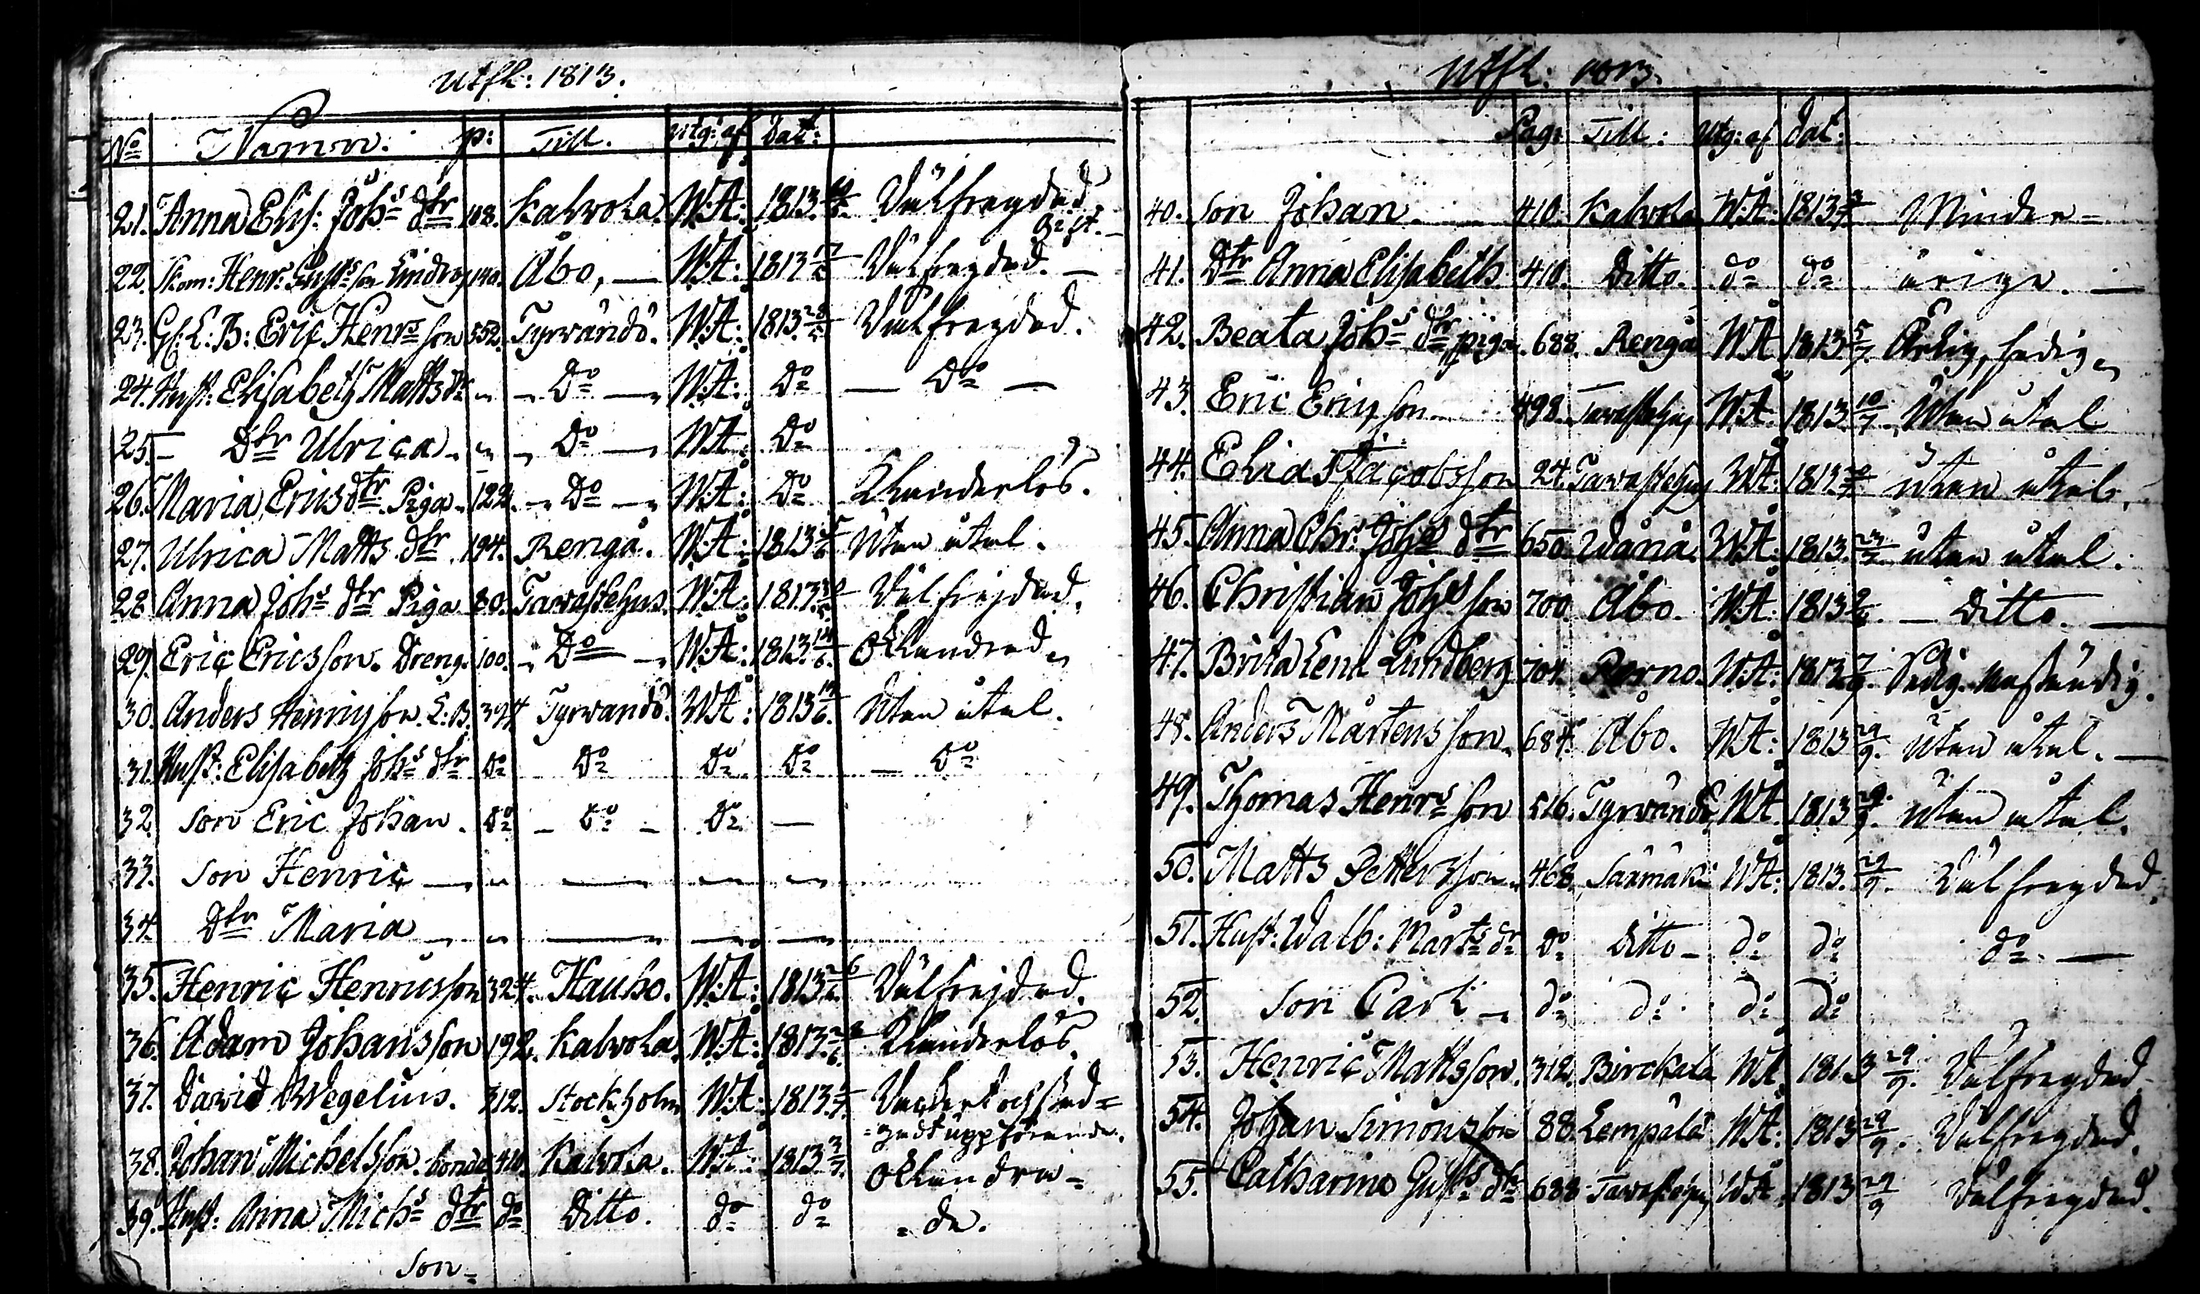 Utfl: 1813.
No Namn: p: Till. Utg: af Dat:
21. Anna Elis: Johs dtr 108. Kalvola. W:Å: 1813. Välfregdad
Gift.
22. Henr: Lindroos Åbo, — W:Å: 1813 Välfregdad. —
23. L: B: Eric Henrs son 552. Tyrvändö. W:Å: 1813. Välfregdad.
24. Hust: Elisabeth Matts dr " Do — W:Å: Do — Do —
25. — Dtr Ulrica — " — Do — W:Å: Do
26. Maria Erics dtr Piga 122. — Do — W:Å: Do Klanderlös.
27. Ulrica Matts dtr 194. Rengå. W:Å: 1813 5/6 Utan åtal.
28. Anna Johs dtr Piga 80. Tavastehus. W:Å: 1813 Välfrejdad.
29. Eric Ericsson. Dreng. 100. — Do — W:Å: 1813. Oklandrad.
30. Anders Henricsson L: B. 394 Tyrvändö. W:Å: 1813 Utan åtal.
31. Hust: Elisabeth Johs dtr Do Do Do Do — Do
32. Son Eric Johan. Do — Do — Do —
33. Son Henric — " — — —
34. Dtr Maria — " — — —
35. Henric Henricsson 324. Hauho. W:Å: 1813 Välfrejdad.
36. Adam Johansson 192. Kalvola. W:Å: 1813. Klanderlös.
37. David Wegelius. 312. Stockholm W:Å: 1813. Vackert och stad=
=gadt uppförande.
38. Johan Michelsson. bonde 410. Kalvola. W:Å: 1813. Oklandra=
39. Hust: Anna Michs dtr do Ditto. do do =de.
Son=
Utfl: 1813.
Pag: Till: Utg: af Dat:
40. Son Johan. 410. Kalvola W:Å: 1813 Minder=
41. Dtr Anna Elisabeth 410. Ditto. do do årige. —
42. Beata Johs dtr piga 688. Rengå W:Å 1813 5/7 Ärlig, sedig
43. Eric Ericsson 498. Tavastehus W:Å: 1813 10/7 Utan åtal
44. Elias Jacobsson 24. Tavastehus W:Å: 1813 utan åtal.
45. Anna Chr: Johs dtr 650. Wånå. W:Å: 1813. utan åtal.
46. Christian Johs son 700 Åbo. W:Å: 1813 — Ditto. —
47. Brita Lena Lundberg 704. Perno. W:Å: 1813 Sedig Anständig.
48. Anders Mårtensson 684. Åbo. W:Å: 1813 29/9. Utan åtal. —
49. Thomas Henrs son 516. Tyrvändö W:Å. 1813 29/9. Utan åtal.
50. Matts Pettersson 468. Säxmäki W:Å: 1813. 29/9. Välfregdad.
51. Hust: Walb: Mårts dr do Ditto — do do do. —
52. Son Carl — do do. do do
53. Henric Mattsson. 312. Birckala W:Å. 1813 29/9. Välfregdad.
54. Johan Simonsson 88. Lempälä W:Å: 1813 29/9. Välfregdad.
55. Catharina Gusts dr 688 Tavastehus W:Å 1813 29/9 Välfregdad.